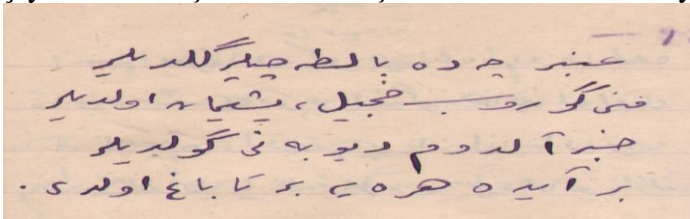 عنبر چه ده بالطه چیلر گلدیلر
منی گوروب خجیل، پشیمان اولدیلر
خبر آلدوم دیو به نی گولدیلر
بر آیده هره یه بر تاباغ اولدی.